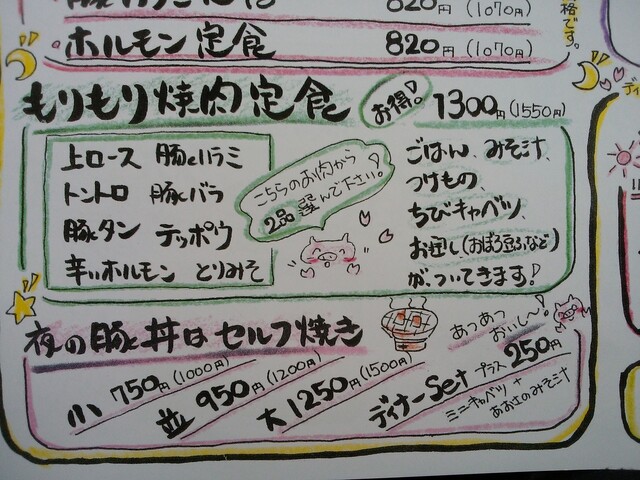 820円(1070円)
ホルモン定食 820円(1070円)
格です。
もりもり焼肉定食 お得! 1300円(1550円)
上ロース 豚ハラミ
トントロ 豚バラ
豚タン テッポウ
辛いホルモン とりみそ
こちらのお肉から
2品選んで下さい!
ごはん、みそ汁、
つけもの、
ちびキャベツ、
お通し(おぼろ豆腐など)
が、ついてきます!
夜の豚丼はセルフ焼き
あつあつ
おいし〜!
小 750円(1000円)
並 950円(1200円)
大 1250円(1500円)
ディナーSet プラス 250円
ミニキャベツ+
あお辻のみそ汁